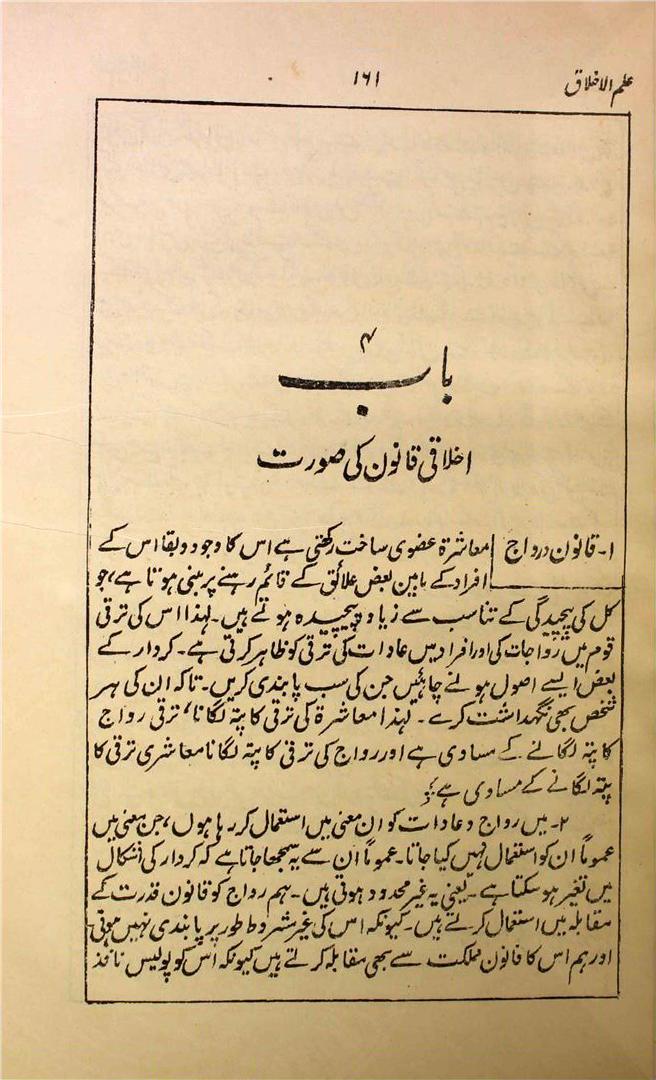 علم الاخلاق
۱۶۱
باب
۴
اخلاقی قانون کی صورت
۱۔ قانون درواج معاشرۃ عضوی ساخت رکھتی ہے اس کا وجود و بقا اس کے
افراد کے مابین بعض علائق کے قائم رہنے پر مبنی ہوتا ہے، جو
کل کی پیچیدگی کے تناسب سے زیادہ پیچیدہ ہوتے ہیں۔ لہذا اس کی ترقی
قوم میں رواجات کی اور افراد میں عادات کی ترقی کو ظاہر کرتی ہے۔ کردار کے
بعض ایسے اصول ہونے چاہئیں جن کی سب پابندی کریں۔ تاکہ ان کی ہر
شخص بھی نگہداشت کرے۔ لہذا معاشرۃ کی ترقی کا پتہ لگانا، ترقی رواج
کا پتہ لگانے کے مساوی ہے اور رواج کی ترقی کا پتہ لگانا معاشری ترقی کا
پتہ لگانے کے مساوی ہے؛
۲۔ میں رواج و عادات کو ان معنی میں استعمال کر رہا ہوں، جن معنی میں
عموماً ان کو استعمال نہیں کیا جاتا۔ عموماً ان سے یہ سمجھا جاتا ہے کہ کردار کی اشکال
میں تغیر ہو سکتا ہے۔ یعنی یہ غیر محدود ہوتی ہیں۔ ہم رواج کو قانون قدرت کے
مقابلہ میں استعمال کرتے ہیں۔ کیونکہ اس کی غیر مشروط طور پر پابندی نہیں ہوتی
اور ہم اس کا قانون مملکت سے بھی مقابلہ کرتے ہیں کیونکہ اس کو پولیس نافذ